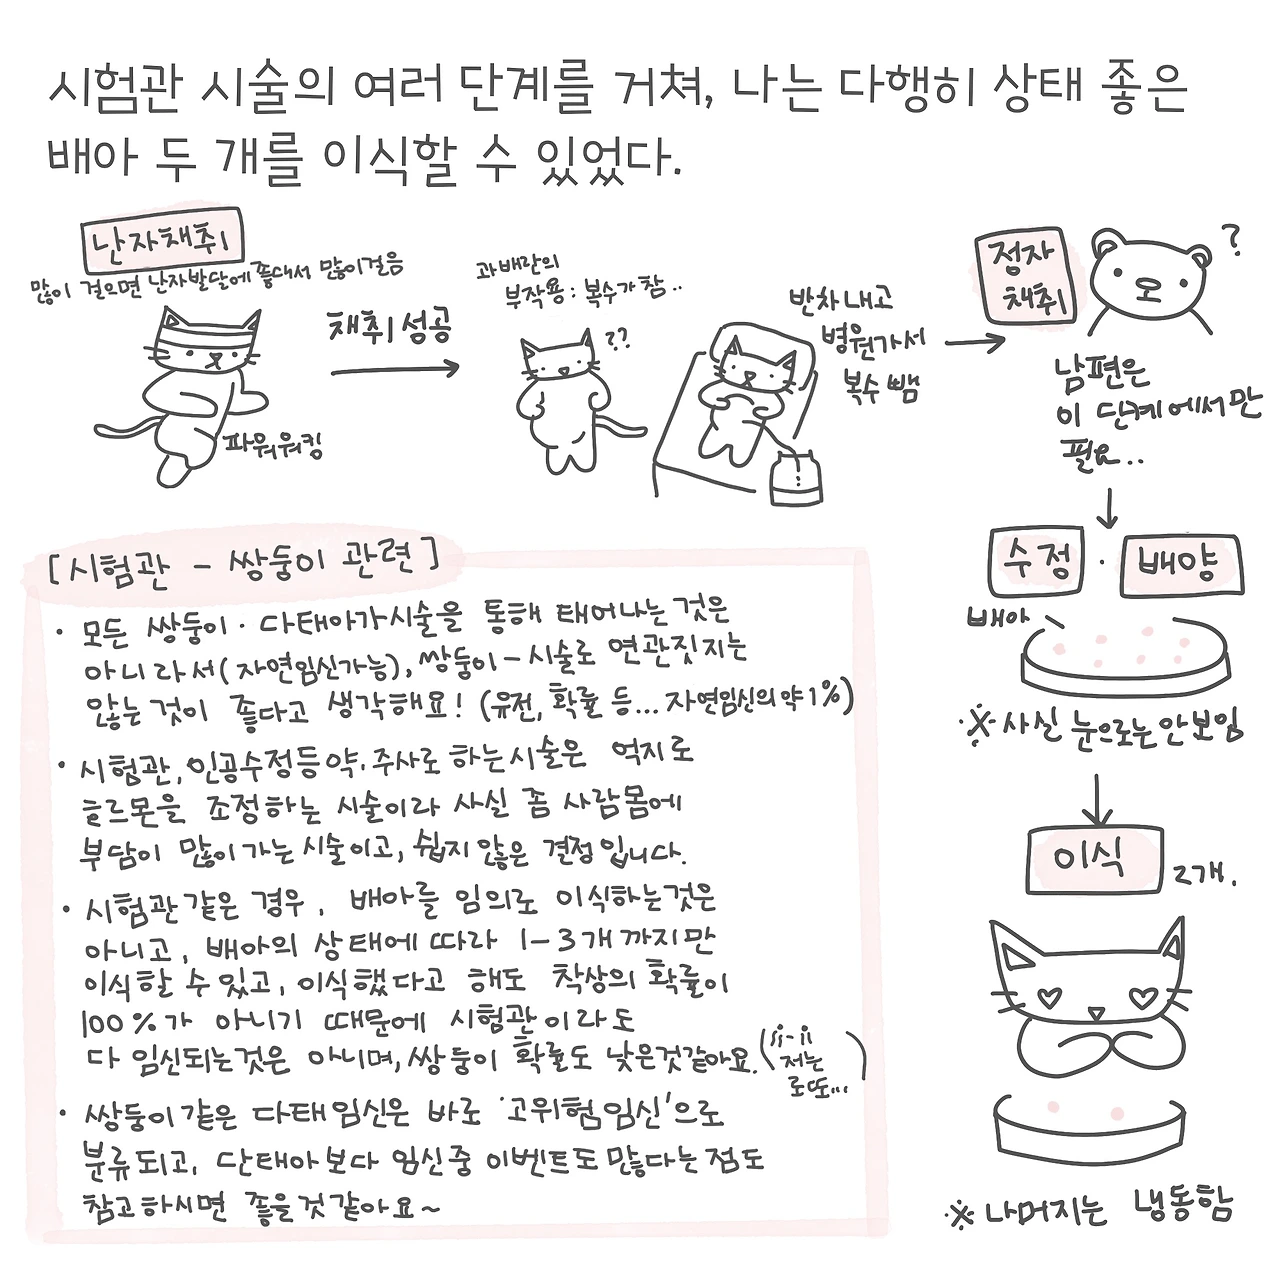 시험관 시술의 여러 단계를 거쳐, 나는 다행히 상태 좋은
배아 두 개를 이식할 수 있었다.
난자채취
많이 걸으면 난자발달에 좋대서 많이걸음
파워워킹
채취 성공
과배란의
부작용 : 복수가 참..
??
반차 내고
병원가서
복수 뺌
정자
채취
?
남편은
이 단계에서만
필요..
수정 · 배양
배아
※사실 눈으로는 안보임
이식
2개.
※나머지는 냉동함
[시험관 - 쌍둥이 관련]
· 모든 쌍둥이·다태아가시술을 통해 태어나는 것은
아니라서(자연임신가능), 쌍둥이-시술로 연관짓지는
않는 것이 좋다고 생각해요! (유전, 확률 등... 자연임신의 약 1%)
· 시험관, 인공수정등 약·주사로 하는 시술은 억지로
홀르몬을 조정하는 시술이라 사실 좀 사람몸에
부담이 많이가는 시술이고, 쉽지 않은 결정입니다.
· 시험관같은 경우, 배아를 임의로 이식하는것은
아니고, 배아의 상태에 따라 1-3개까지만
이식할 수 있고, 이식했다고 해도 착상의 확률이
100%가 아니기 때문에 시험관이라도
다 임신되는것은 아니며, 쌍둥이 확률도 낮은것같아요.
저는
로또...
· 쌍둥이같은 다태임신은 바로 '고위험임신'으로
분류되고, 단태아보다 임신중 이벤트도 많다는 점도
참고하시면 좋을것같아요~